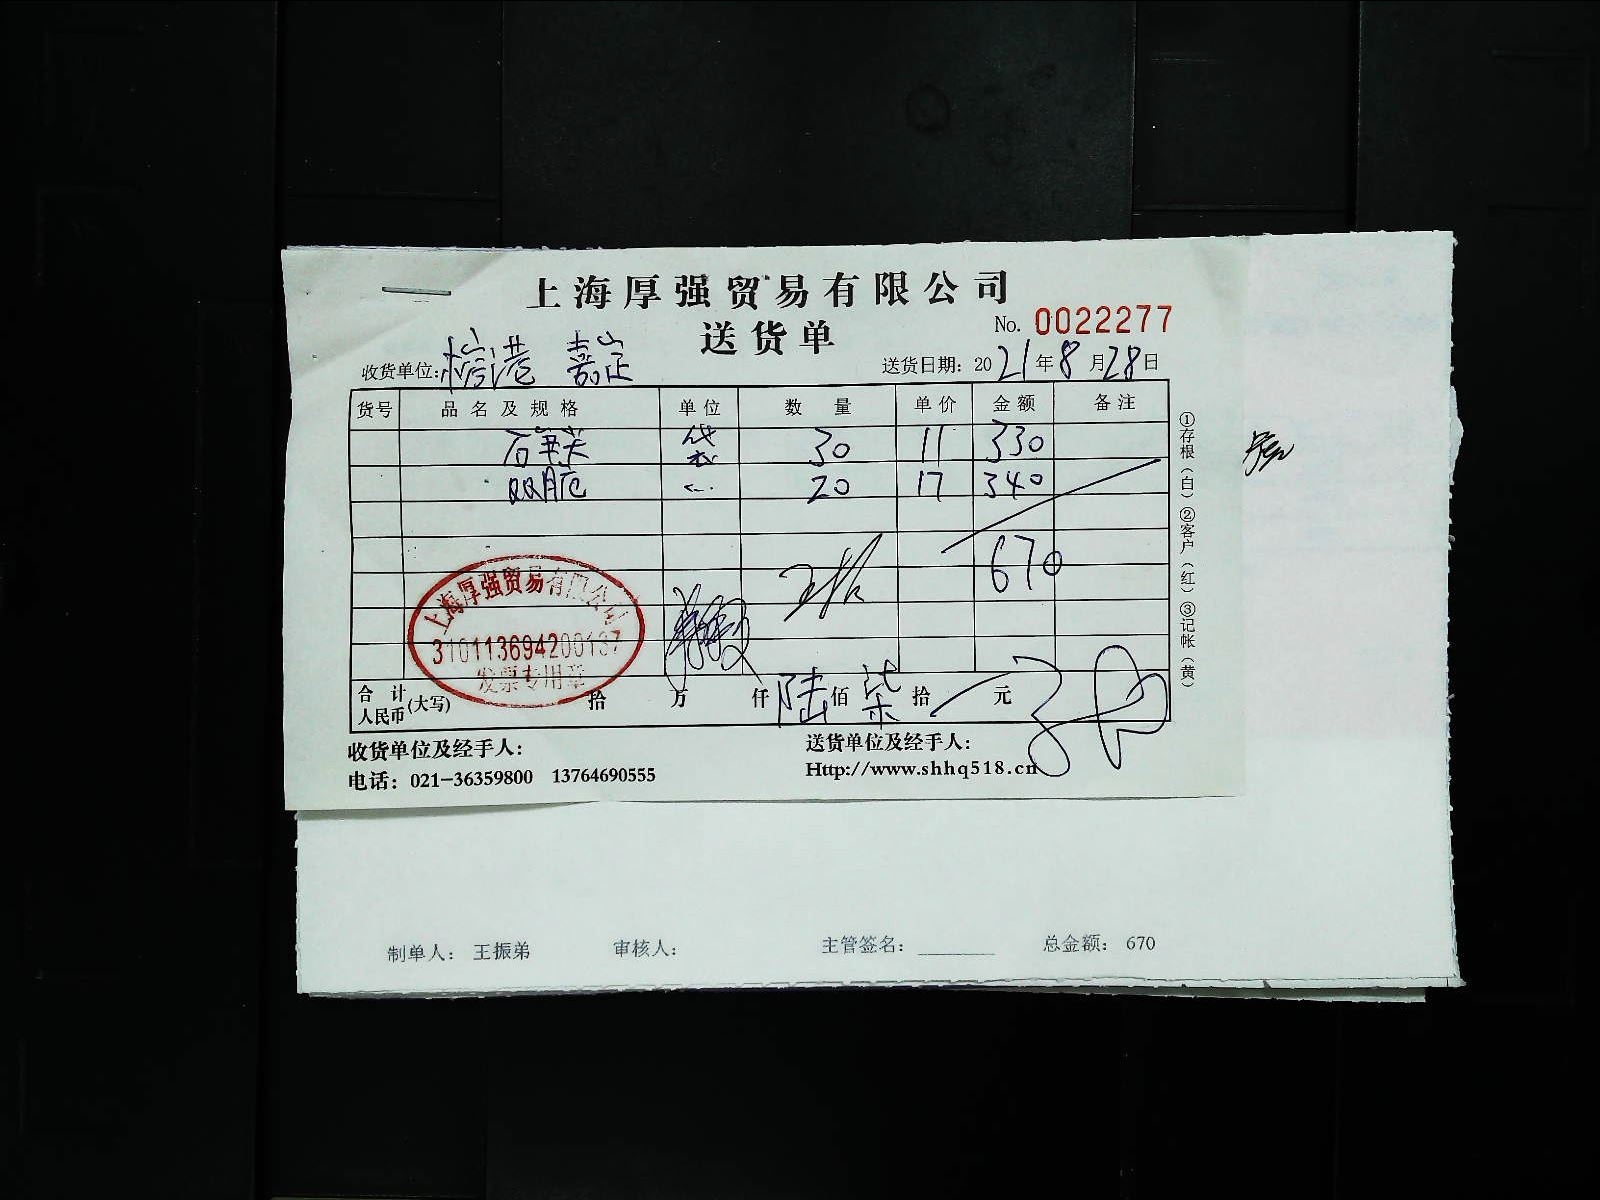 上海厚强贸易有限公司
送货单
No. 0022277
收货单位: 港 嘉定
送货日期: 2021年8月28日
货号 品名及规格 单位 数量 单价 金额 备注
袋 30 11 330
20 17 340
670
上海厚强贸易有限公司
310113694200137
发票专用章
合计人民币(大写) 拾 万 仟 陆 佰 柒 拾 元
收货单位及经手人:
送货单位及经手人:
电话: 021-36359800 13764690555
Http://www.shhq518.cn
①存根(白)②客户(红)③记帐(黄)
制单人: 王振弟 审核人: 主管签名: ________ 总金额: 670